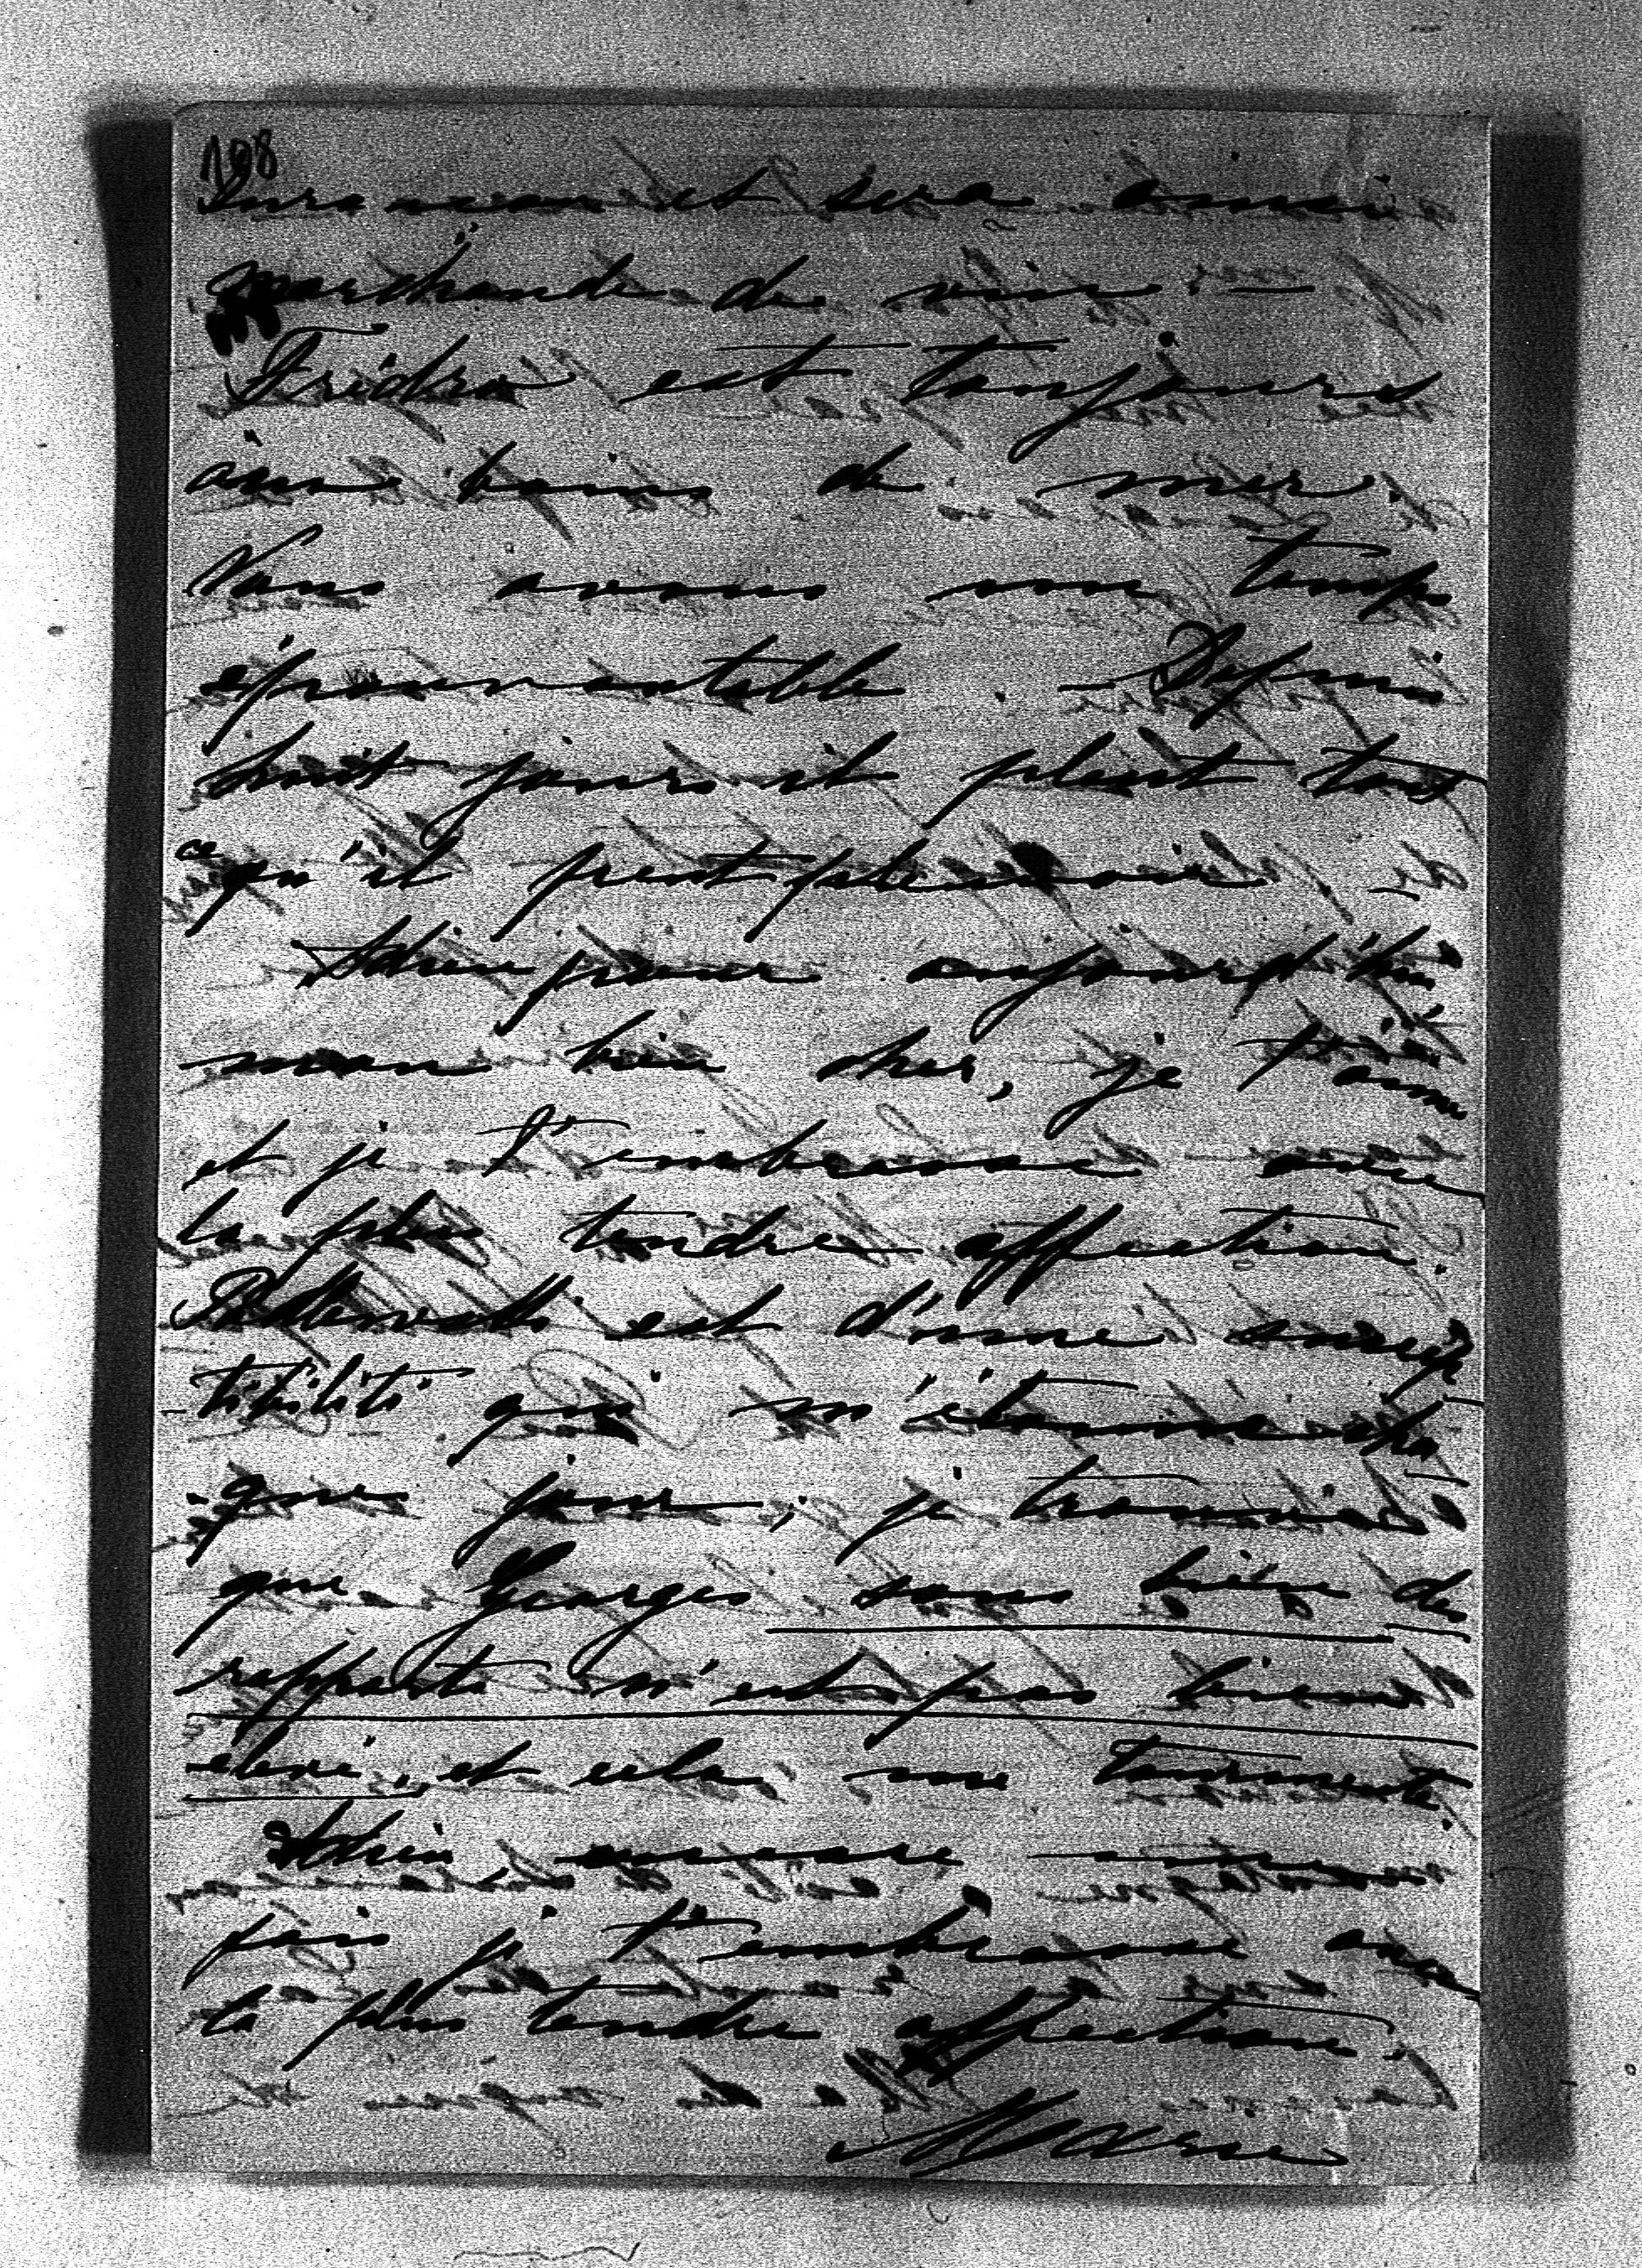 108
et sera ainsi
marchande de vins. —
Frédro est toujours
aux bains de mer.
Nous avons un temps
épouvantable. — Depuis
huit jours il pleut tout
ce qu'il peut pleuvoir. —
Adieu pour aujourd'hui,
mon bien cher, je t'aime
et je t'embrasse avec
la plus tendre affection.
est d'une suscep
-tibilité qui m'étonne cha-
-que jour; je trouve
que Georges sous bien des
rapports n'est pas bien
élevé, et cela me tourmente.
Adieu, encore une
fois je t'embrasse avec
la plus tendre affection.